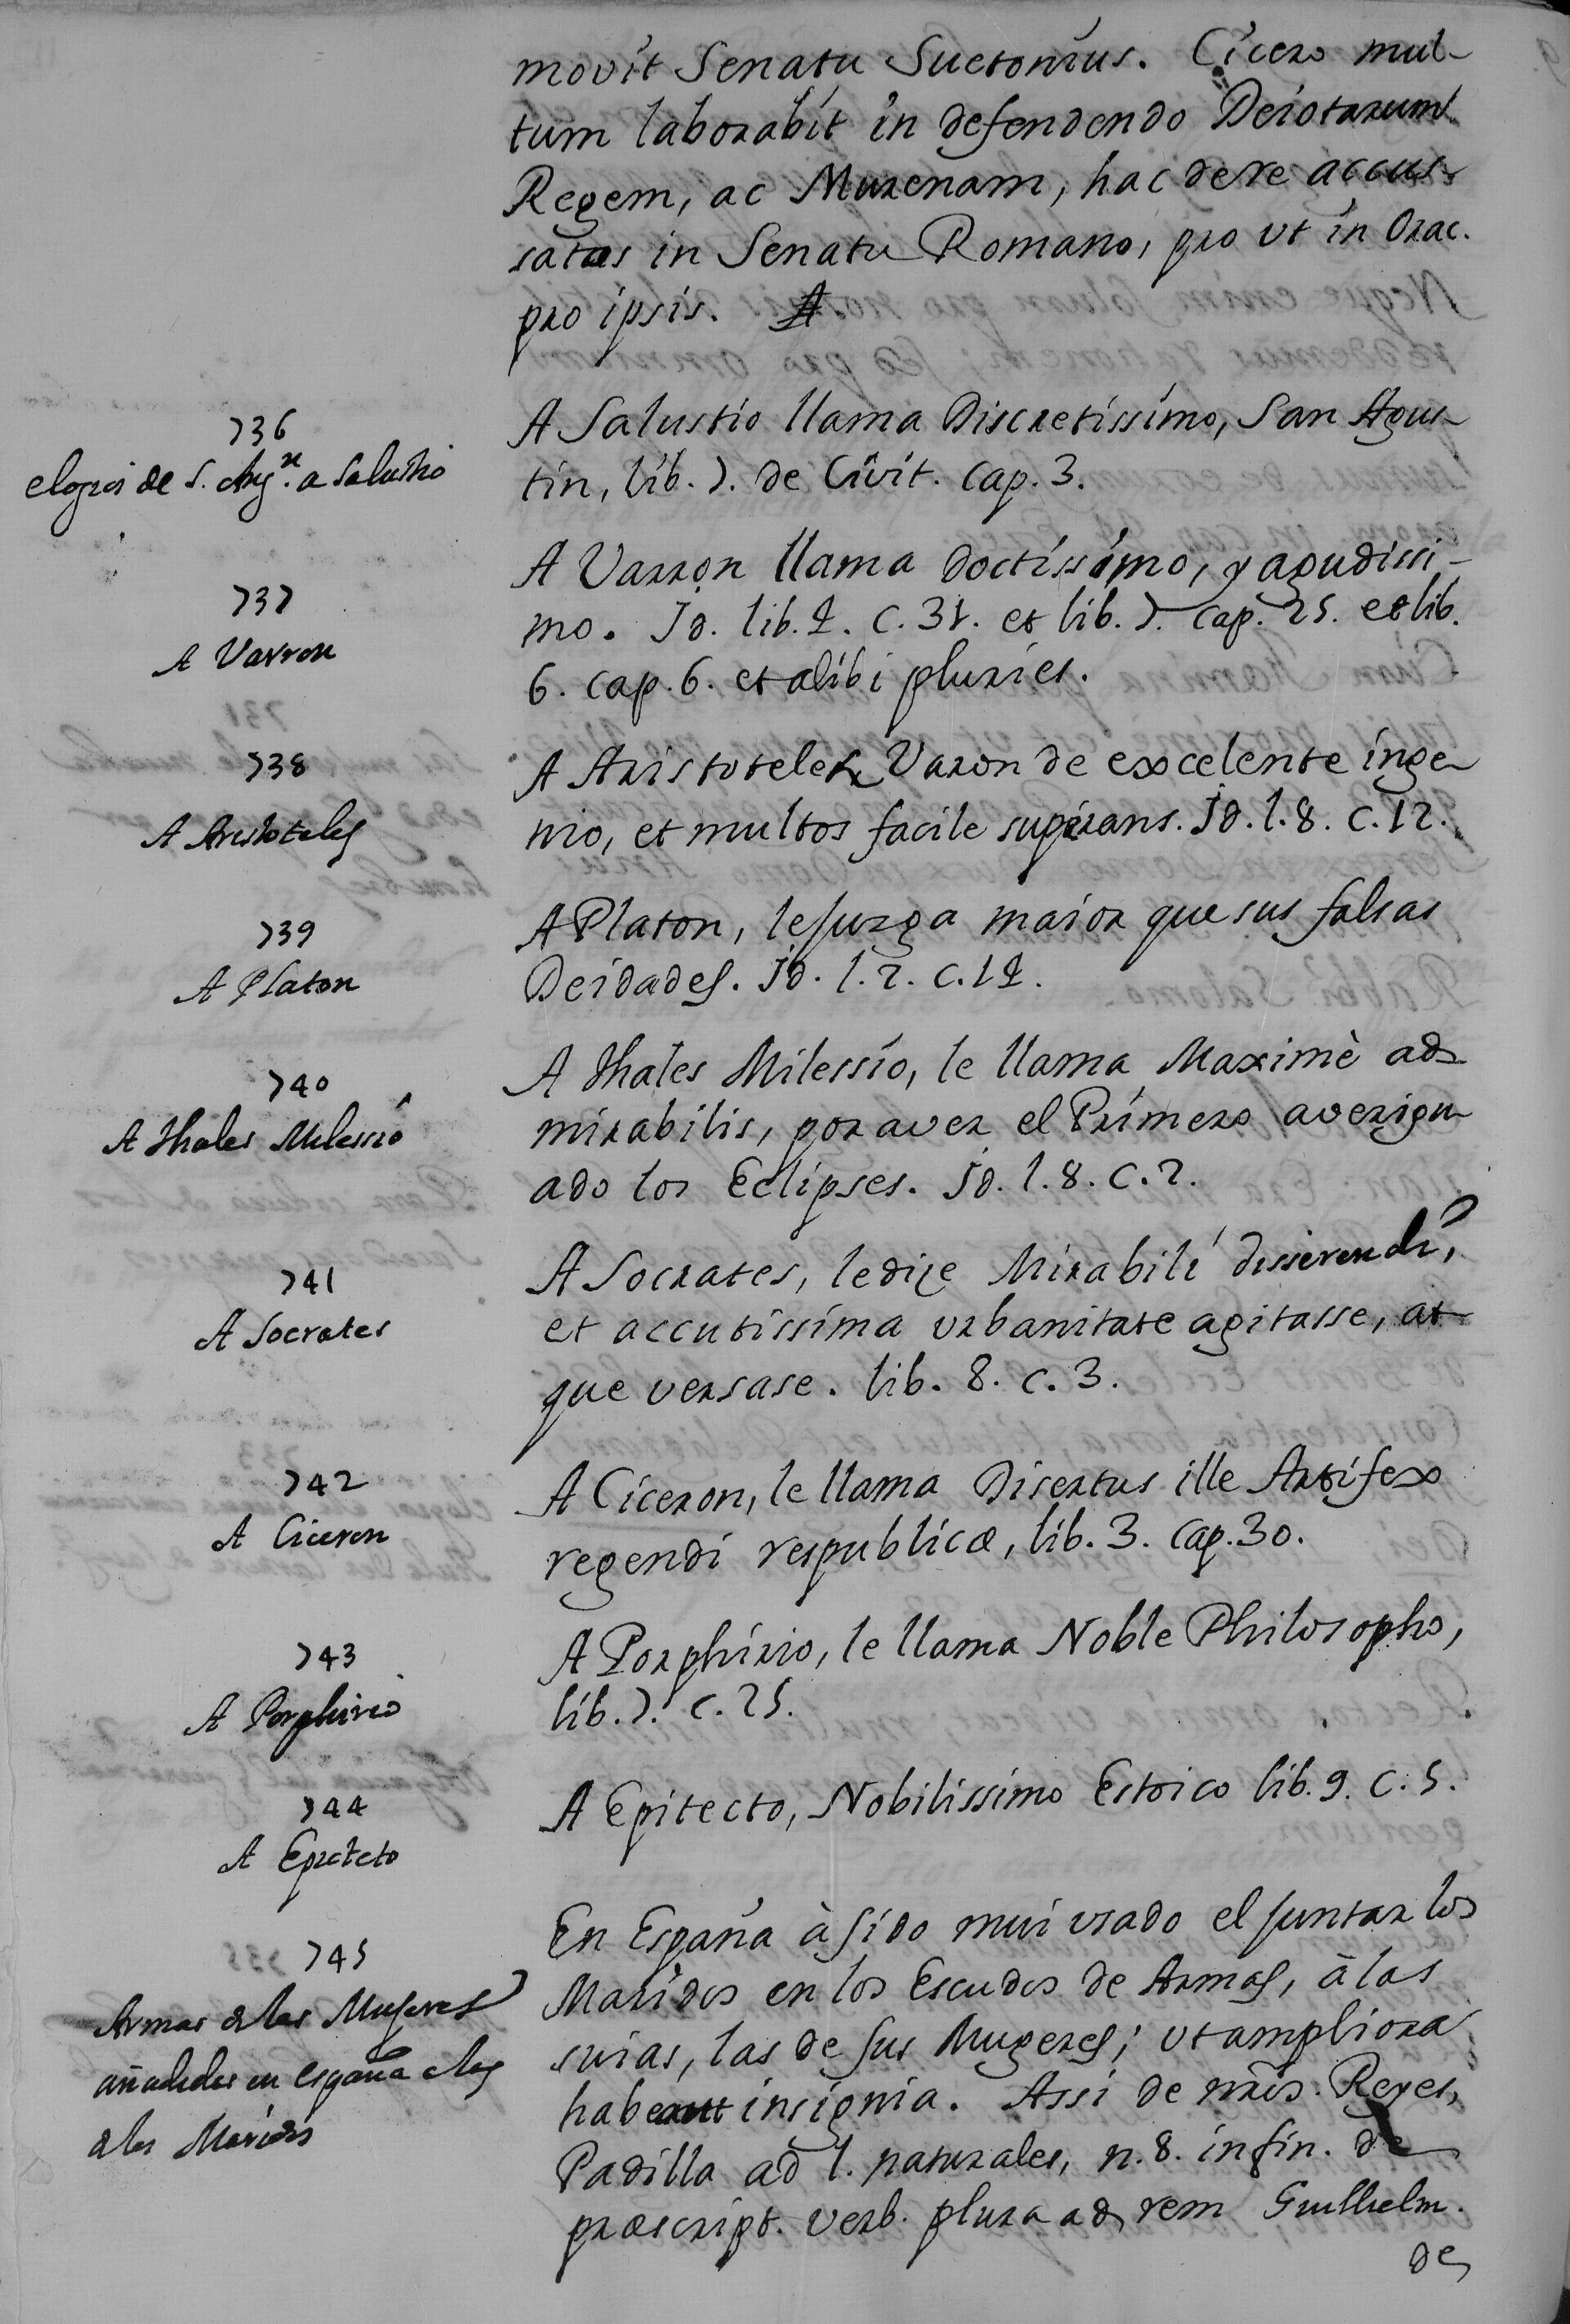 movit Senatu Suetonius. Cicero mul-
tum laborabit in defendendo Deiotarum
Regem, ac Murenam, hac de re accus-
satos in Senatu Romano, pro vt in Orac.
pro ipsis.
736
elogios de S. Aug.n a Salustio
A Salustio llama Discretissimo, San Agus-
tin, lib. 7. de Civit. cap. 3.
737
A Varron
A Varron llama doctissimo, y agudissi-
mo. Id. lib. 4. c. 31. et lib. 7. cap. 25. et lib.
6. cap. 6. et alibi pluries.
738
A Aristoteles
A Aristoteles Varon de excelente inge-
nio, et multos facile superans. Id. l. 8. c. 12.
739
A Platon
A Platon, le juzga maior que sus falsas
Deidades. Id. l. 2. c. 14.
740
A Thales Milessio
A Thales Milessio, le llama Maximè ad-
mirabilis, por aver el Primero averigu-
ado los Eclipses. Id. l. 8. c. 2.
741
A Socrates
A Socrates, le dize Mirabili disserendi,
et accutissima vrbanitate agitasse, at-
que versase. lib. 8. c. 3.
742
A Ciceron
A Ciceron, le llama Disertus ille Artifex
regendi respublicæ, lib. 3. cap. 30.
743
A Porphirio
A Porphirio, le llama Noble Philosopho,
lib. 7. c. 25.
744
A Epicteto
A Epitecto, Nobilissimo Estoico lib. 9. c. 5.
745
Armas de las Mugeres
añadidas en españa a las
de los Maridos
En España à sido mui vsado el juntar los
Maridos en los Escudos de Armas, à las
suias, las de sus Mugeres; vt ampliora
habeant insignia. Assi de nr̃os. Reyes,
Padilla ad l. naturales, n. 8. in fin. de
præscript. verb. plura ad rem Guillielm.
de